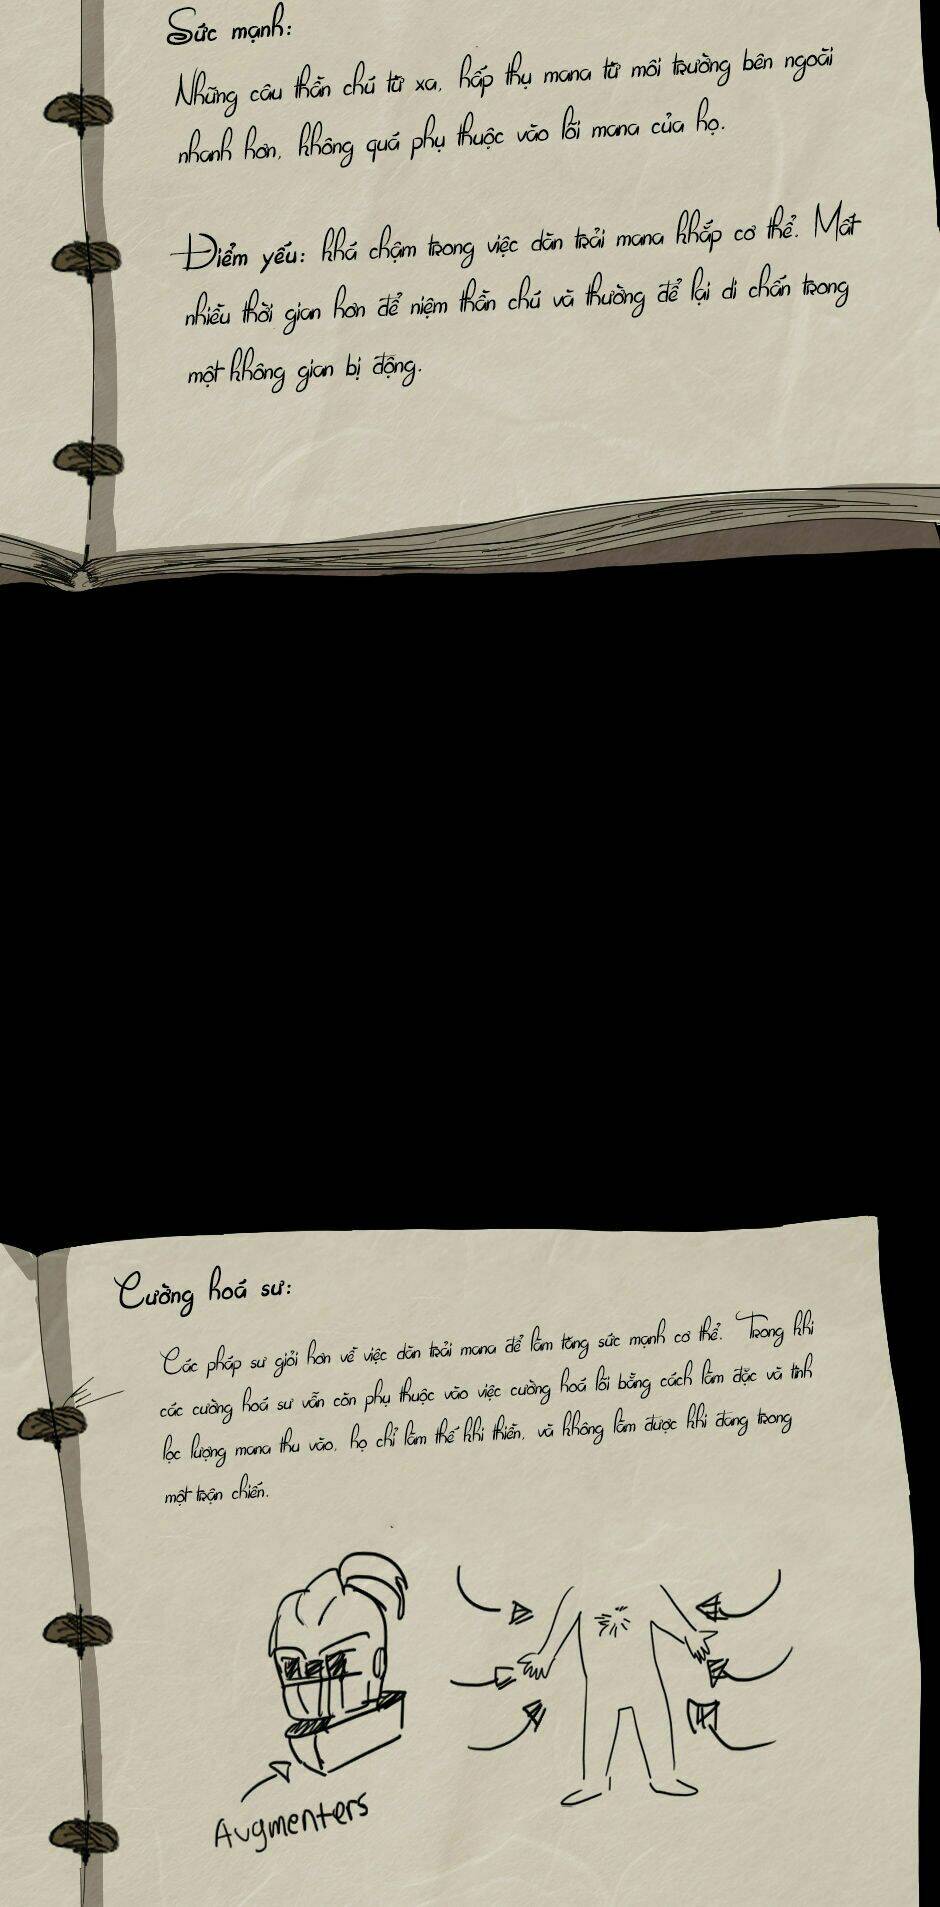 Sức mạnh:
Những câu thần chú từ xa, hấp thụ mana từ môi trường bên ngoài
nhanh hơn, không quá phụ thuộc vào lõi mana của họ.
Điểm yếu: khá chậm trong việc dàn trải mana khắp cơ thể. Mất
nhiều thời gian hơn để niệm thần chú và thường để lại di chấn trong
một không gian bị động.
Cường hoá sư:
Các pháp sư giỏi hơn về việc dàn trải mana để làm tăng sức mạnh cơ thể. Trong khi
các cường hoá sư vẫn còn phụ thuộc vào việc cường hoá lõi bằng cách làm đặc và tinh
lọc lượng mana thu vào, họ chỉ làm thế khi thiền, và không làm được khi đang trong
một trận chiến.
Augmenters